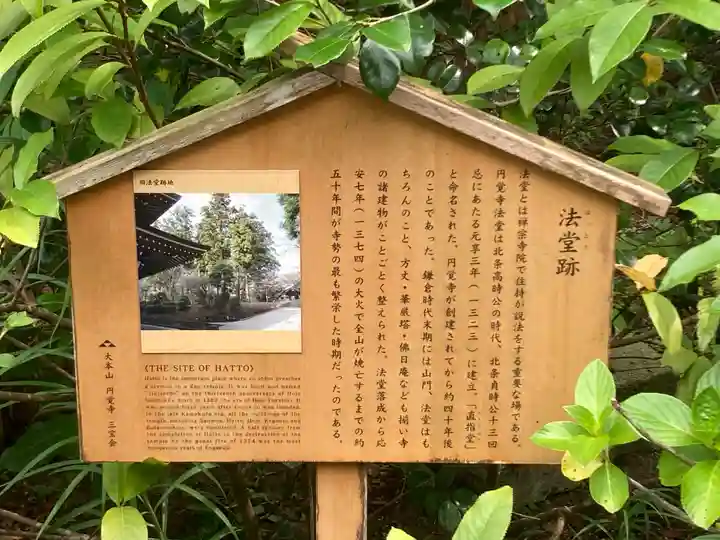 法堂跡
はっとう
法堂とは禅宗寺院で住持が説法をする重要な場である。
円覚寺法堂は北条高時公の時代、北条貞時公十三回
忌にあたる元亨三年(一三二三)に建立「直指堂」
と命名された。円覚寺が創建されてから約四十年後
のことであった。鎌倉時代末期には山門、法堂はも
ちろんのこと、方丈・華厳塔・佛日庵なども揃い寺
の諸建物がことごとく整えられた。法堂落成から応
安七年(一三七四)の大火で全山が焼亡するまでの約
五十年間が寺勢の最も繁栄した時期だったのである。
旧法堂跡地
(THE SITE OF HATTO)
Hatto is the important place where an elder preaches
a sermon in a Zen temple. It was built and named
on the thirteenth anniversary of Hojo
It
was around forty years after
In
the late Kamakura era, all the buildings of the
temple, including Sanmon, Hatto, Hojo, Kegonto and
were completed. A half century from
the completion of Hatto to the destruction of the
temple by the great fire of 1374 was the most
prosperous years of Engakuji.
大本山 円覚寺 三宝会